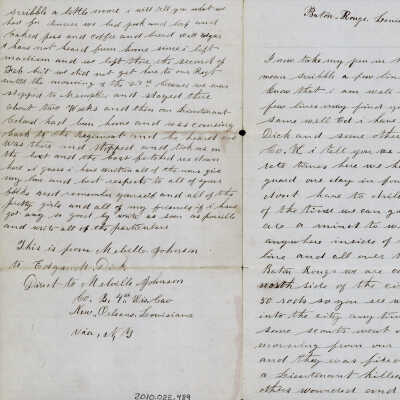 scribble a little more i will tell you what we
had for dinner we had pork and beef and
baked peas and coffe and bread well Edgar
i have not heard from home since i left
madison and we left there the second of
Feb but we did not get here to our Regt
until the morning of the 27th because we was
stoped to Memphis and stayed there
about two Weeks and then our Lieutenant
had bin home and was coming
back to the Regiment and he heard we
was there and stopped and took us on
the boat and the boat fetched us clean
here i guess i have written all of the news give
my love and best respects to all of your
folks and remember yourself and all of the
pretty girls and all of my friends if i have
got any so good by write as soon as possible
and write all of the particulars
This is from Melville Johnson
to Edgar W. Dick
Direct to Melville Johnson
Co. E, 4th Wis Cav
New Orleans Louisiana
via, N.Y
2010.022.489
Baton Rouge
I now take my pen in
mean scribble a few lin
know that i am well
few lines may find you
same well Ed i have
Dick and some other
Co, K i tell you we a
rate times here we h
guard one day in fou
dont have to drill
of the time we can go
are a mind to w
anywhere inside of
line and all over t
Baton Rouge we are c
north side of the ci
50 rods so you see w
into the city any tim
some scouts went o
morning from our
and they was fired
a Lieutenant killed
others wounded and